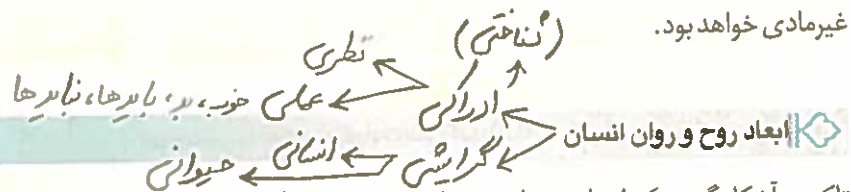 غیرمادی خواهد بود.
(شناختی)
نظری
ادراکی
عملی خوب، بد، بایدها، نبایدها
ابعاد روح و روان انسان
گرایشی
انسانی
حیوانی